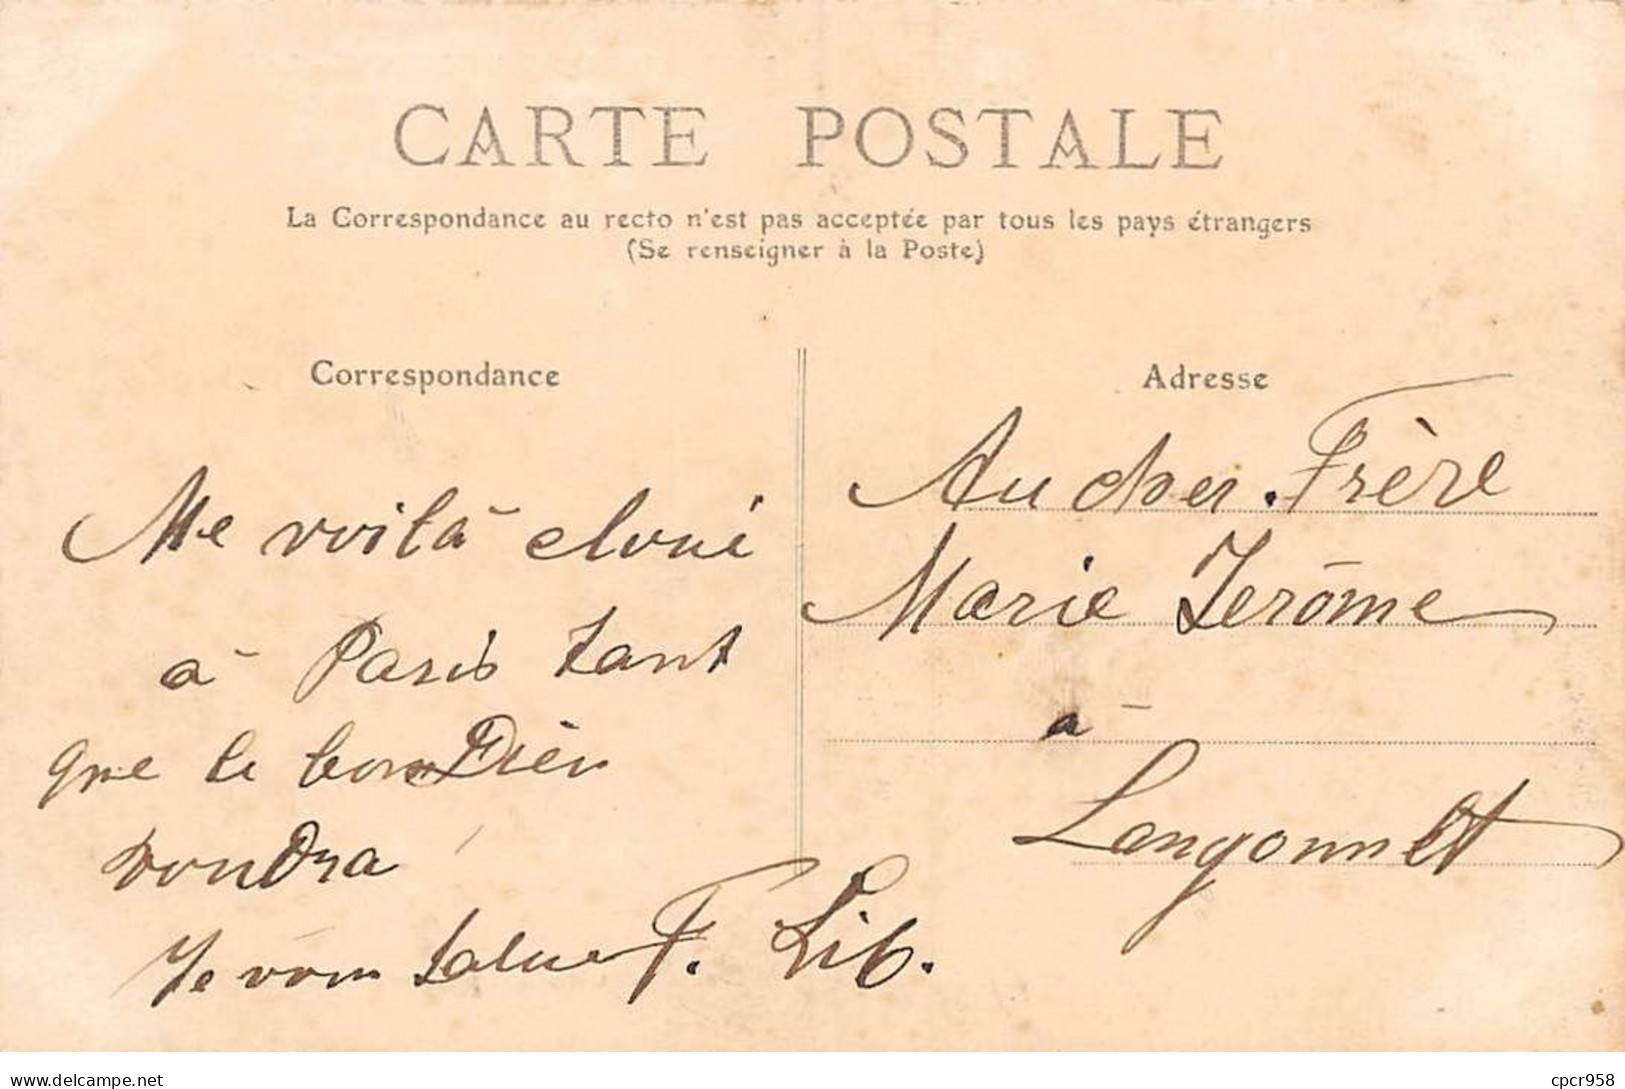 CARTE POSTALE
La Correspondance au recto n'est pas acceptée par tous les pays étrangers
(Se renseigner à la Poste)
Correspondance
Me voilà cloué
à Paris tant
que le bon Dieu
voudra
Je vous salue F. Lib.
Adresse
Au cher. Frère
Marie Jerôme
à
Langonnet
delcampe.net
cpcr958